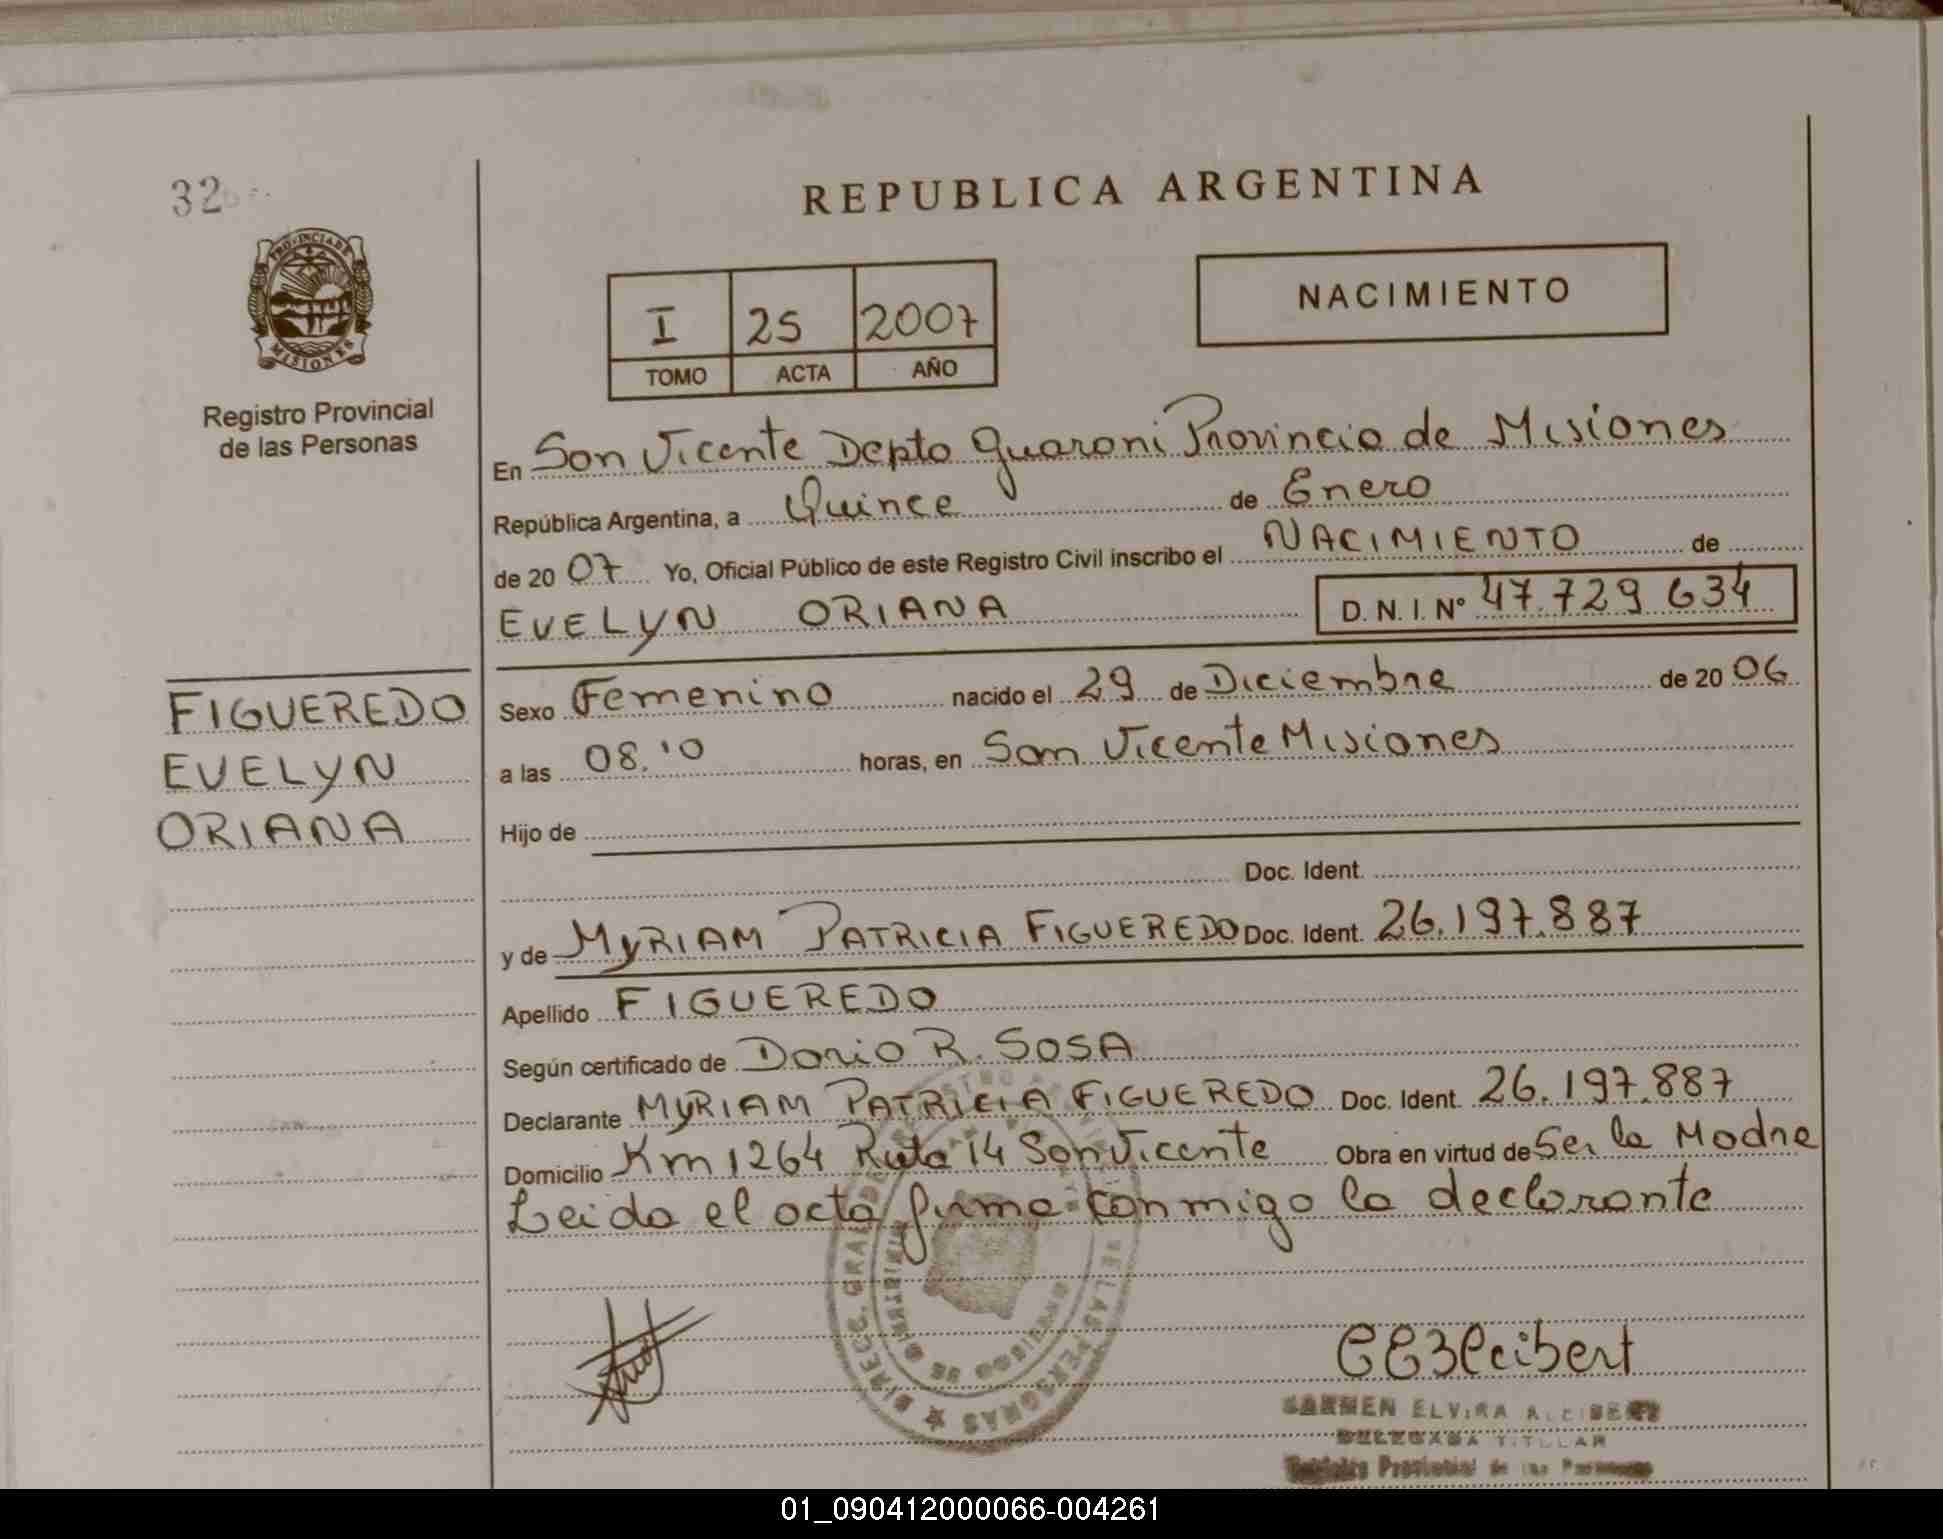 32
REPUBLICA ARGENTINA
PROVINCIA DE
MISIONES
Registro Provincial
de las Personas
I 25 2007
TOMO ACTA AÑO
NACIMIENTO
En San Vicente Depto Guarani Provincia de Misiones
República Argentina, a Quince de Enero
de 2007 Yo, Oficial Público de este Registro Civil inscribo el NACIMIENTO de
EVELYN ORIANA D.N.I. Nº 47.729 634
FIGUEREDO
EVELYN
ORIANA
Sexo Femenino nacido el 29 de Diciembre de 2006
a las 08.10 horas, en San Vicente Misiones
Hijo de
Doc. Ident.
y de MYRIAM PATRICIA FIGUEREDO Doc. Ident. 26.197.887
Apellido FIGUEREDO
Según certificado de Dario R. SOSA
Declarante MYRIAM PATRICIA FIGUEREDO Doc. Ident. 26.197.887
Domicilio Km 1264 Ruta 14 San Vicente Obra en virtud de Ser la Madre
Leida el acta firma conmigo la declarante
DIRECC. GRAL. DE REGISTRO DE LAS PERSONAS
CARMEN ELVIRA ALCIBERT
DELEGADA TITULAR
Registro Provincial de las Personas
01_090412000066-004261